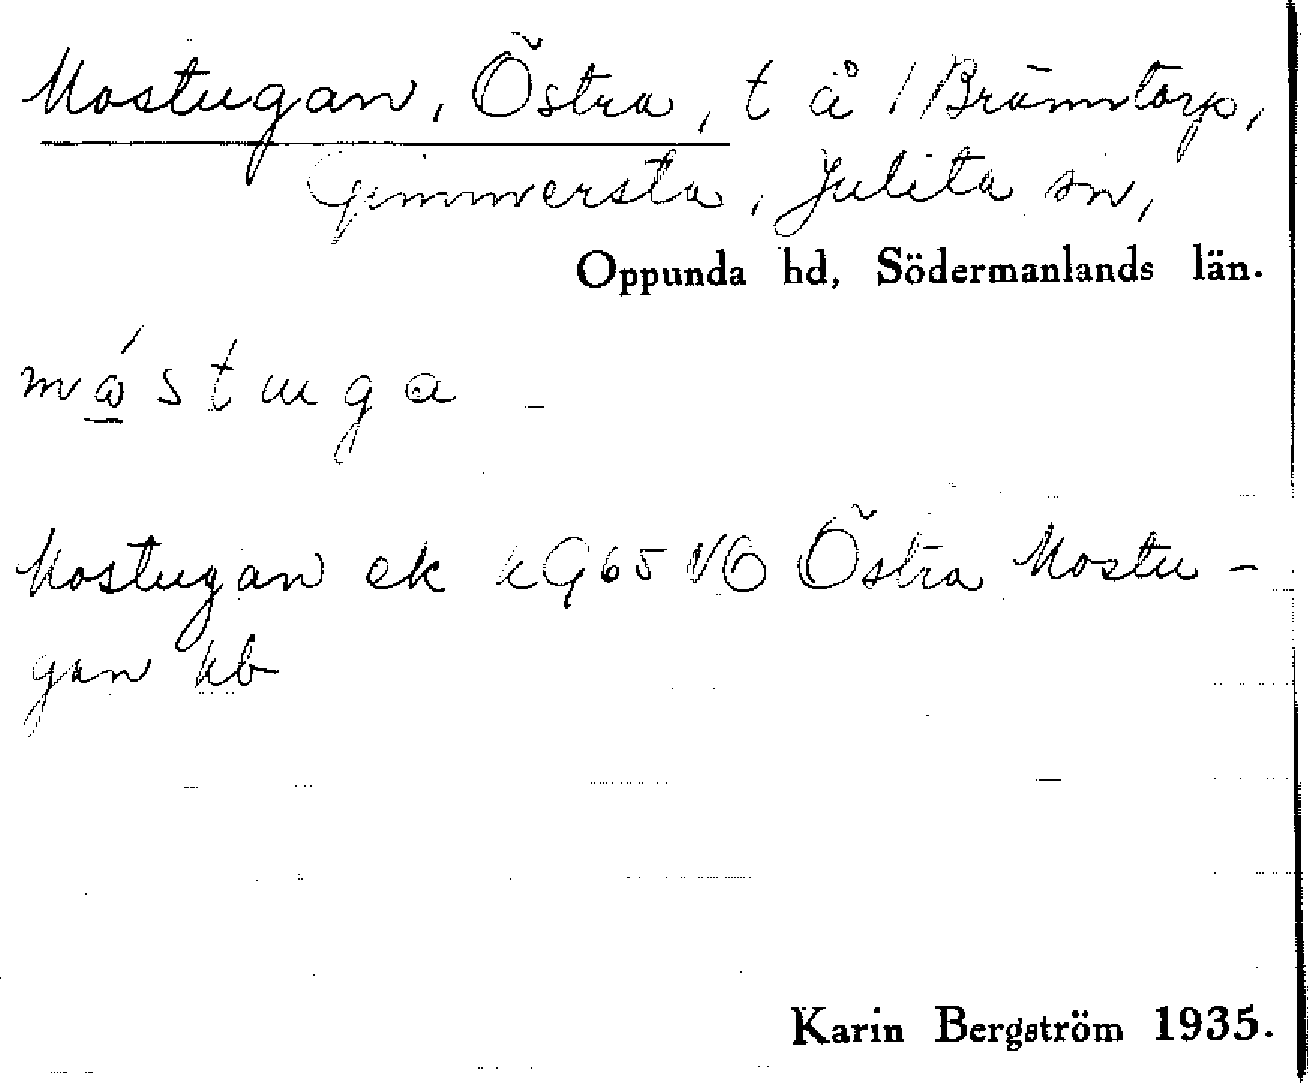 Mostugan, Östra, t å / Bränntorp,
Gimmersta, Julita sn,
Oppunda hd, Södermanlands län.
mó̲stuga
Mostugan ek kG65NO Östra Mostu-
gan kb
Karin Bergström 1935.